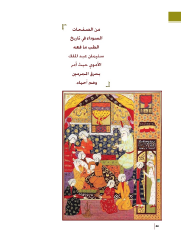 من الصفحات
السوداء في تاريخ
الطب ما فعله
سليمان عبد الملك
الأموي حيث أمر
بحرق المجذومين
وهم أحياء